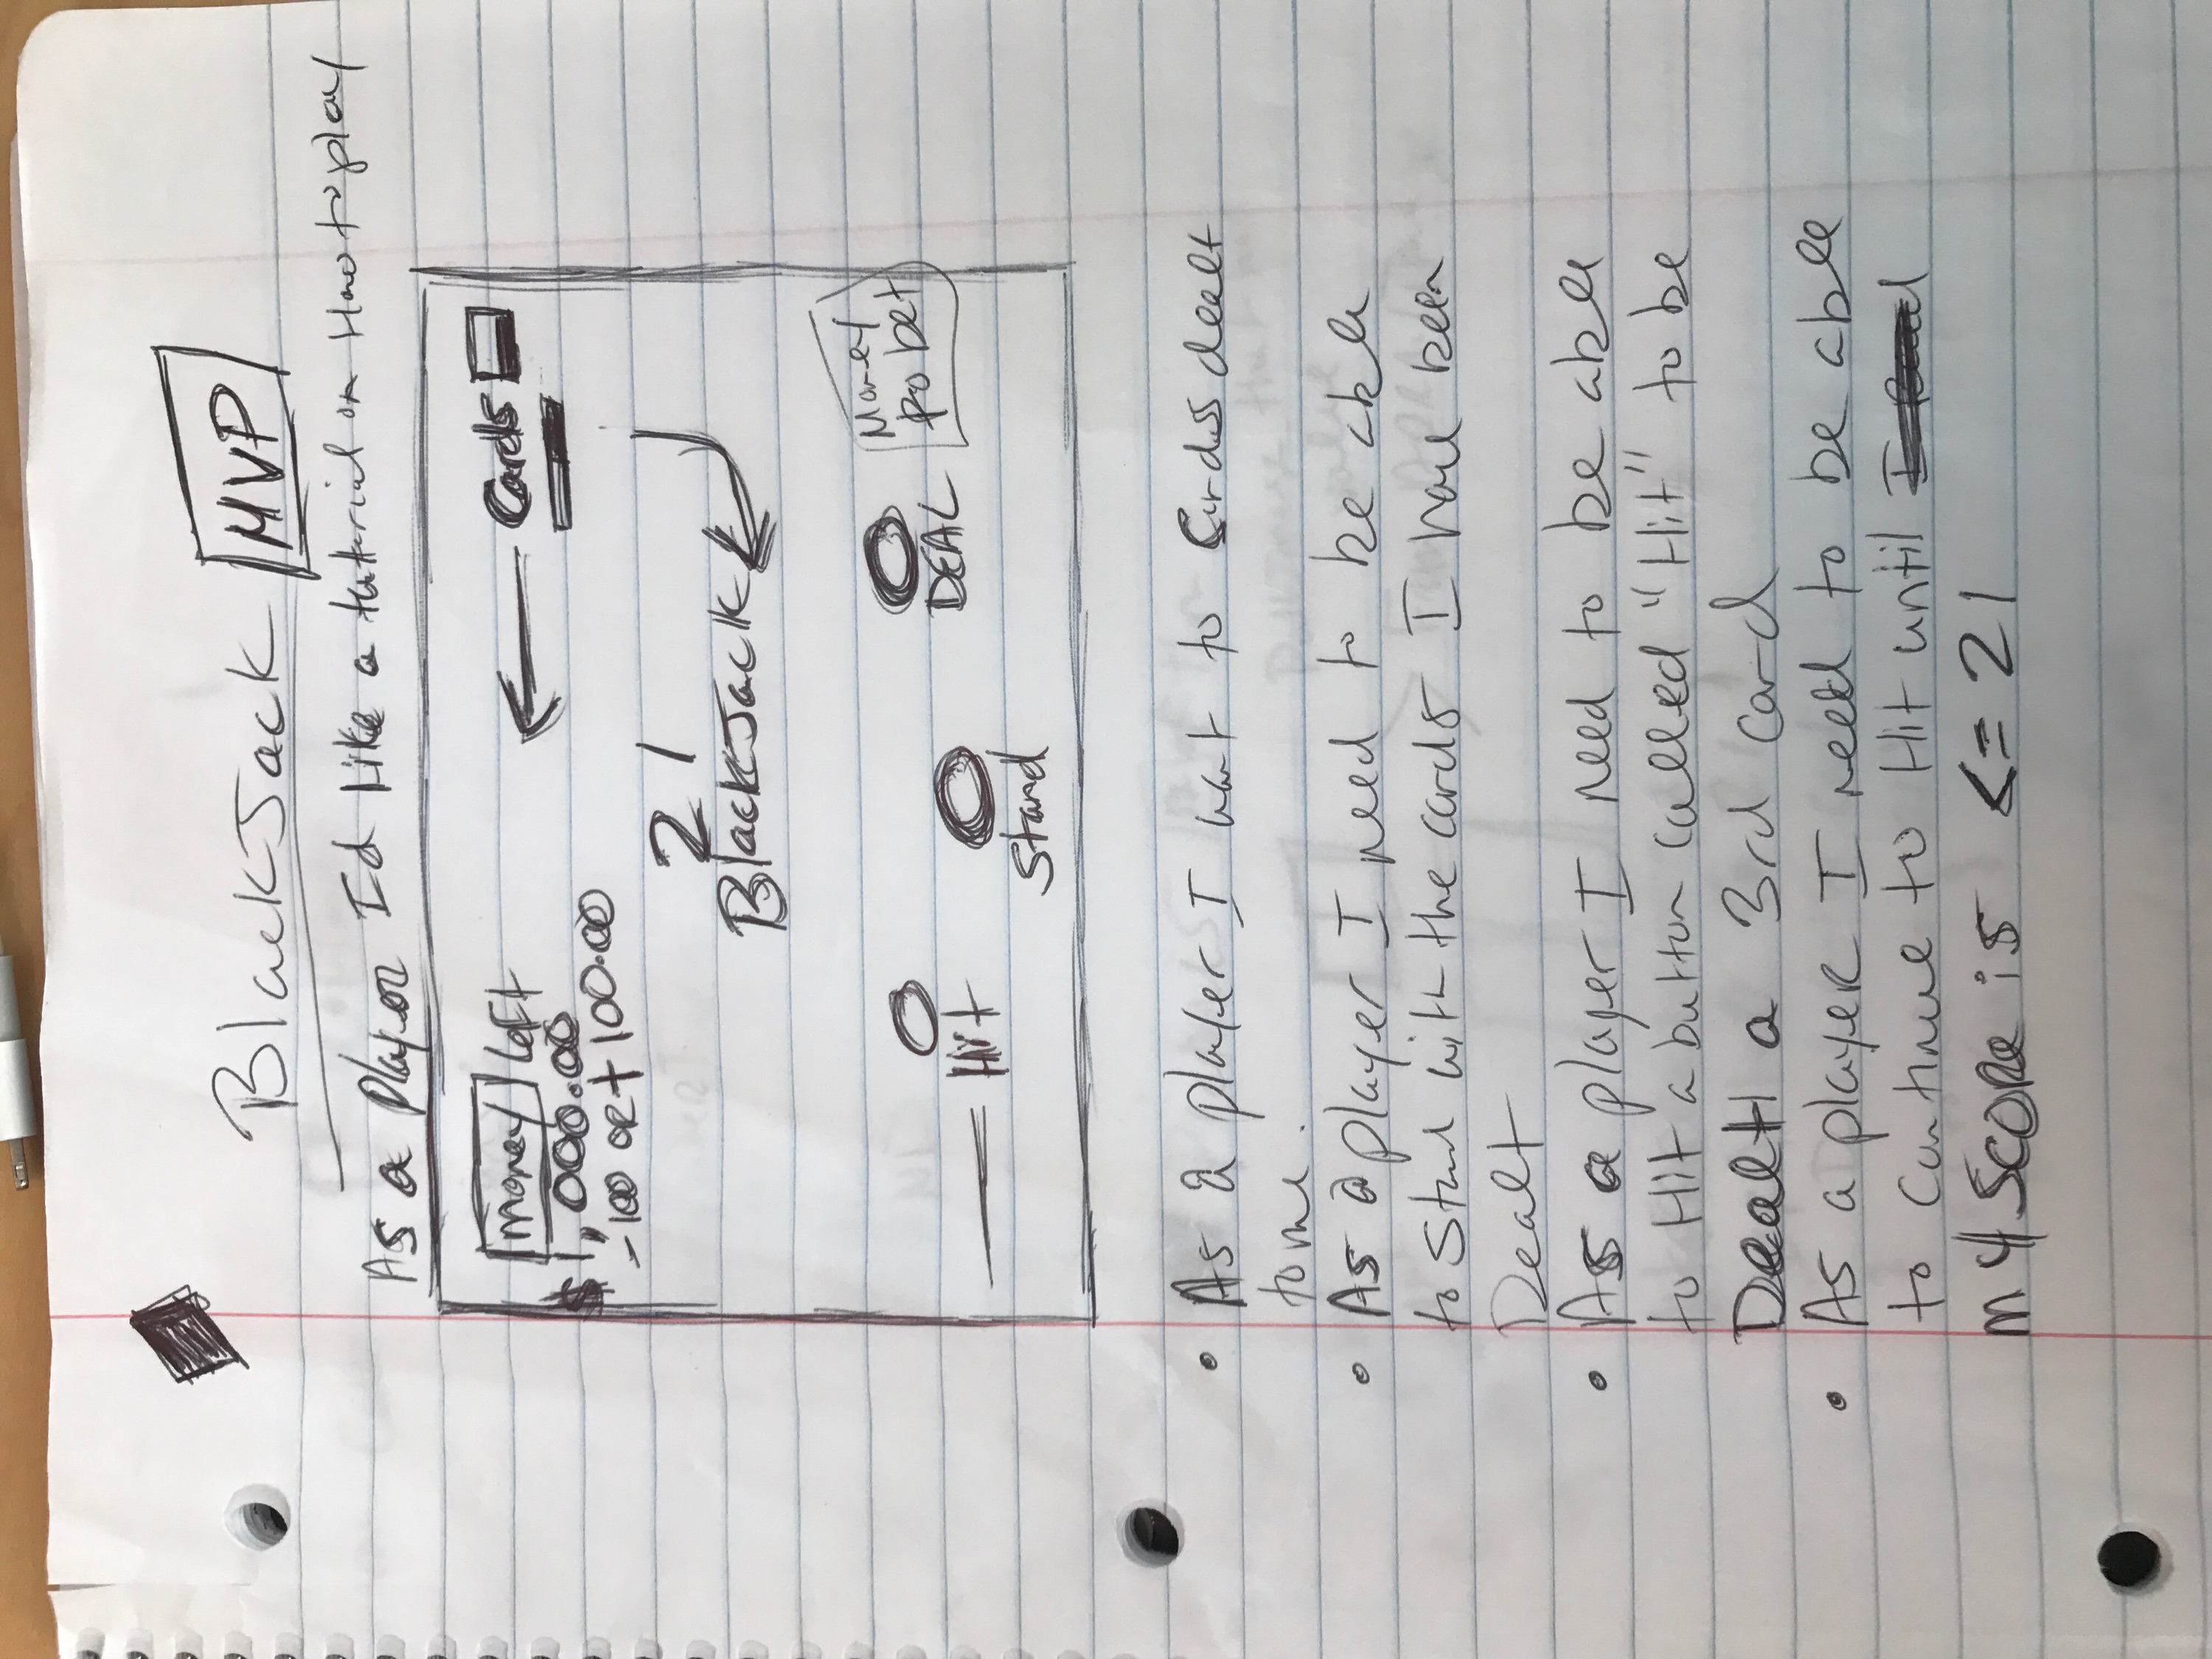 BlackJack MVP
As a Player I'd Like a tutterial on How to play
money left
Cards
$1,000.00
-100 OR + 100.00
21
BlackJack
Money to bet
DEAL
Hit
Stand
• As a player I want to Cards dealt
to me.
• As a player I need to be able
to Stand with the cards I have been
Dealt
• As a player I need to be able
to Hit a button called "Hit" to be
Dealt a 3rd card
• As a player I need to be able
to Continue to Hit until
my Score is <= 21